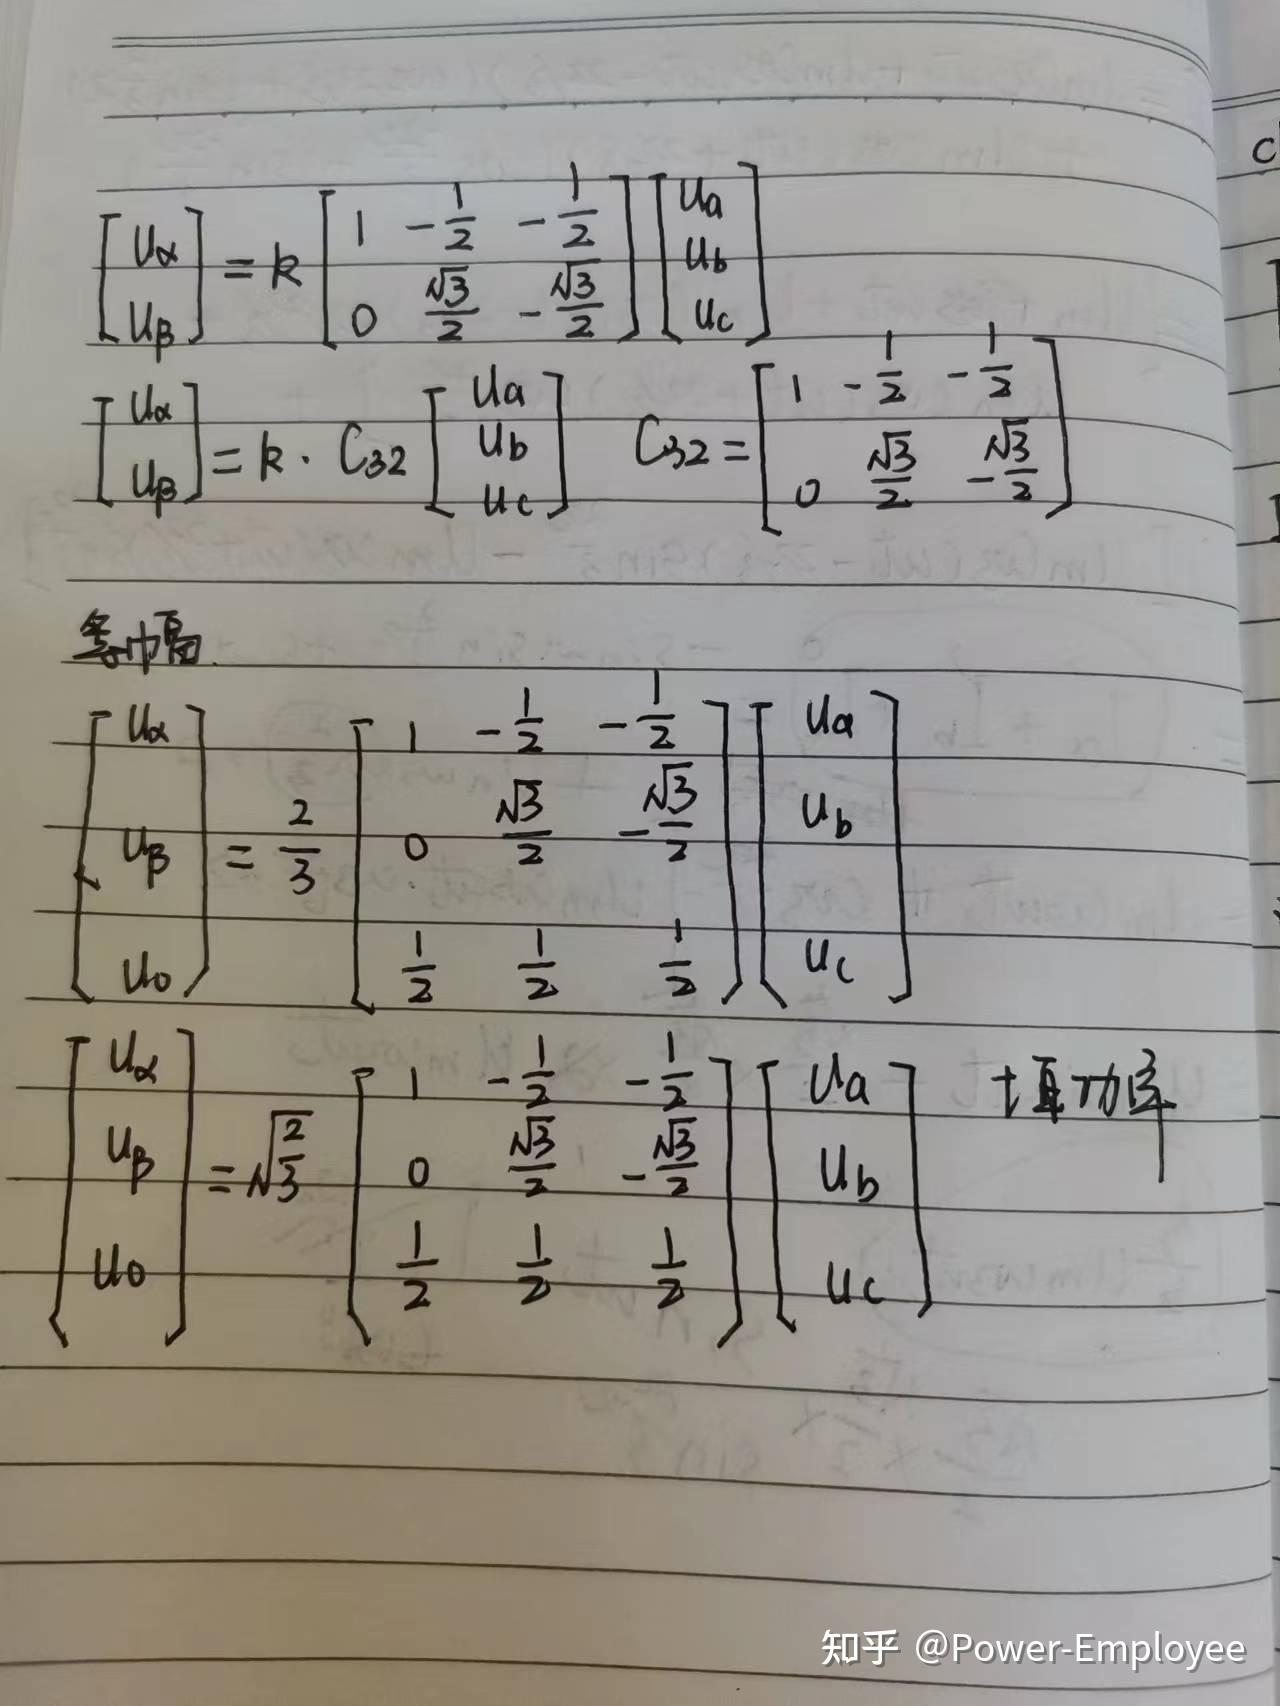 [uα uβ] = k [1 -1/2 -1/2; 0 √3/2 -√3/2] [ua ub uc]
[uα uβ] = k · C32 [ua ub uc] C32 = [1 -1/2 -1/2; 0 √3/2 -√3/2]
等幅值
[uα uβ u0] = 2/3 [1 -1/2 -1/2; 0 √3/2 -√3/2; 1/2 1/2 1/2] [ua ub uc]
[uα uβ u0] = √(2/3) [1 -1/2 -1/2; 0 √3/2 -√3/2; 1/2 1/2 1/2] [ua ub uc] 恒功率
知乎 @Power-Employee